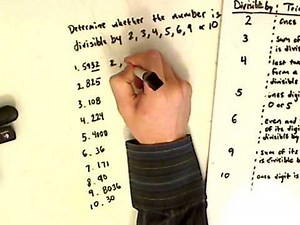 Determine whether the number is
divisible by 2, 3, 4, 5, 6, 9 or 10
1. 5932 2,
2. 825
3. 108
4. 224
5. 4100
6. 36
7. 171
8. 90
9. 8036
10. 30
Divisible by
2 ones
3 sum of
is divis
4 last tw
form a
divisible
5 ones digit
0 or 5
6 even and
of digits
divisible by
9 sum of its
is divisible b
10 ones digit is